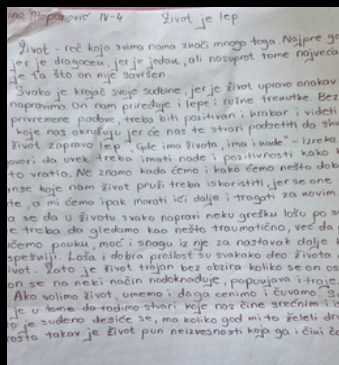 ina Stepanović IV-4 Život je lep
Život - reč koja svima nama znači mnogo toga. Najpre go
jer je dragocen, jer je jedan, ali nasuprot tome najveća
je ta što on nije savršen.
Svako je krojač svoje sudbine, jer je život upravo onakav
napravimo. On nam priređuje i lepe i ružne trenutke. Bez
privremene padove, treba biti pozitivan i hrabar i videti
koje nas okružuju jer će nas te stvari podsetiti da shv
život zapravo lep. "Gde ima života, ima i nade" - izreka
ovori da uvek treba imati nade i pozitivnosti kako b
to vratio. Ne znamo kada ćemo i kako ćemo nešto dob
nse koje nam život pruži treba iskoristiti, jer se one
te, a mi ćemo ipak morati ići dalje i tragati za novim
a se da u životu svako napravi neku grešku lošu po s
e treba da gledamo kao nešto traumatično, već da
učemo pouku, moć i snagu iz nje za nastavak dalje
spešniji. Loša i dobra prošlost su svakako deo života
ivot. Zato je život trajan bez obzira koliko se on os
on se na neki način nadoknađuje, popunjava i traje.
Ako volimo život, umemo i da ga cenimo i čuvamo.
je u tome da radimo stvari koje nas čine srećnim i is
o je suđeno desiće se, ma koliko god mi to želeli dr
rosto takav je život pun neizvesnosti koja ga i čini